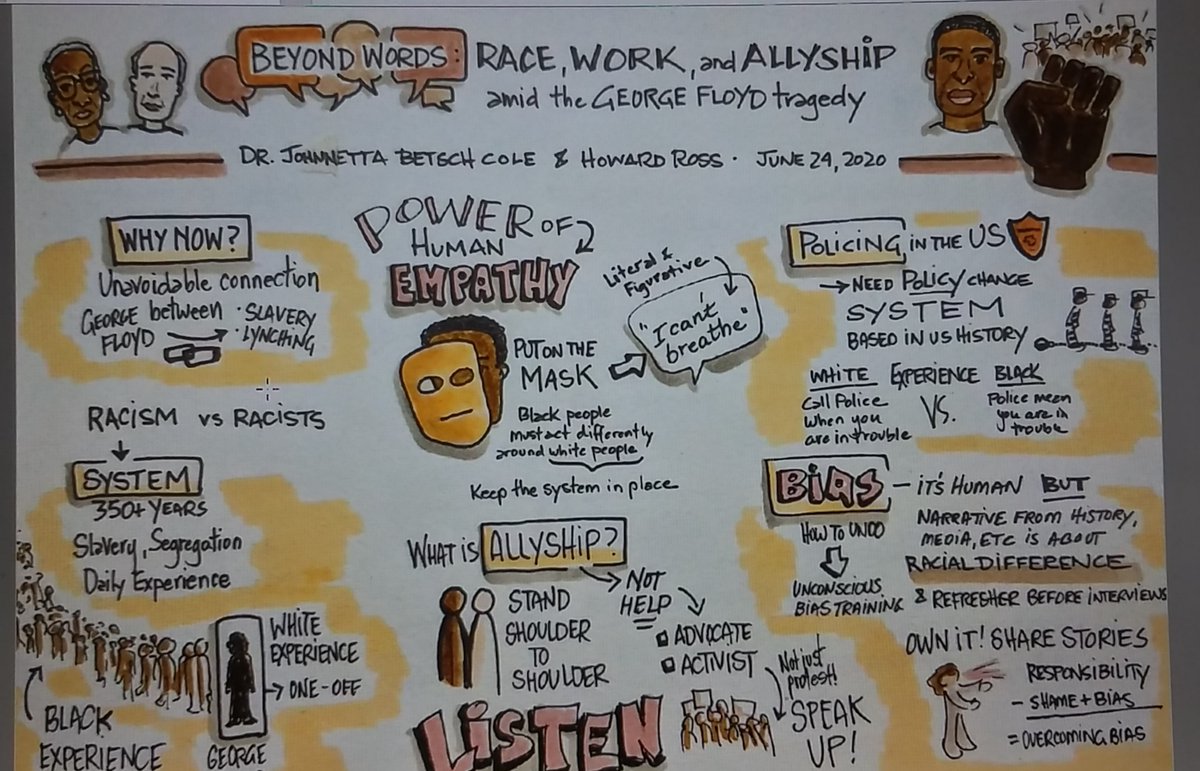 BEYOND WORDS: RACE, WORK, and ALLYSHIP
amid the GEORGE FLOYD tragedy
DR. JOHNNETTA BETSCH COLE & HOWARD ROSS · JUNE 24, 2020
WHY NOW?
Unavoidable connection
between
GEORGE FLOYD
· SLAVERY
· LYNCHING
RACISM VS RACISTS
SYSTEM
350+ YEARS
Slavery, Segregation
Daily Experience
BLACK
EXPERIENCE
WHITE
EXPERIENCE
ONE-OFF
GEORGE
POWER OF
HUMAN
EMPATHY
PUT ON THE
MASK
Literal &
Figurative
"I can't
breathe"
Black people
must act differently
around white people
Keep the system in place
WHAT IS ALLYSHIP?
NOT
HELP
STAND
SHOULDER
TO
SHOULDER
ADVOCATE
ACTIVIST
Not just
protest!
SPEAK
UP!
LISTEN
POLICING IN THE US
NEED POLICY CHANGE
SYSTEM
BASED IN US HISTORY
WHITE EXPERIENCE BLACK
Call Police
when you
are in trouble
VS.
Police mean
you are in
trouble
BIAS - IT'S HUMAN BUT
NARRATIVE FROM HISTORY,
MEDIA, ETC IS ABOUT
RACIAL DIFFERENCE
HOW TO UNDO
UNCONSCIOUS
BIAS TRAINING
& REFRESHER BEFORE INTERVIEWS
OWN IT! SHARE STORIES
RESPONSIBILITY
- SHAME + BIAS
= OVERCOMING BIAS